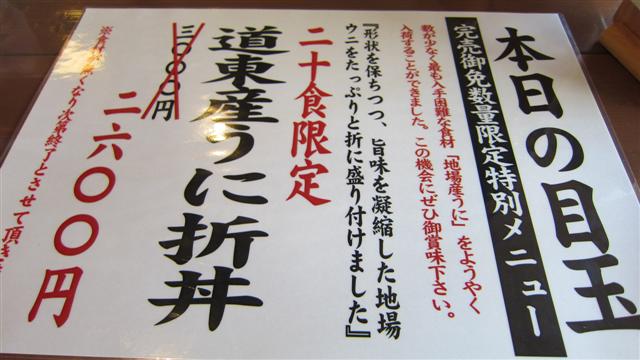 本日の目玉
完売御免数量限定特別メニュー
数が少なく最も入手困難な食材「地場産うに」をようやく
入荷することができました。この機会にぜひ御賞味下さい。
『形状を保ちつつ、旨味を凝縮した地場
ウニをたっぷりと折に盛り付けました』
二十食限定
道東産うに折丼
三〇〇〇円
二六〇〇円
なくなり次第終了とさせて頂き